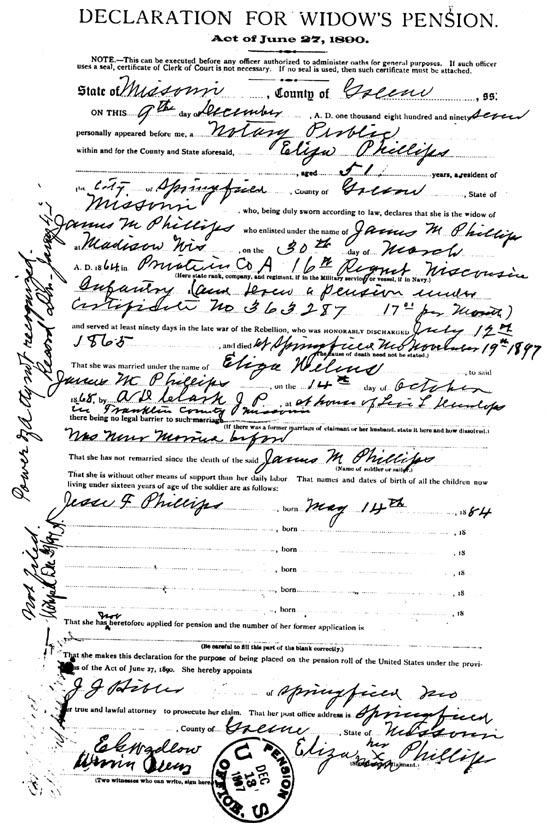 DECLARATION FOR WIDOW'S PENSION.
Act of June 27, 1890.
NOTE.—This can be executed before any officer authorized to administer oaths for general purposes. If such officer
uses a seal, certificate of Clerk of Court is not necessary. If no seal is used, then such certificate must be attached.
State of Missouri, County of Greene, SS:
ON THIS 9th day of December, A. D. one thousand eight hundred and ninety seven
personally appeared before me, a Notary Public
within and for the County and State aforesaid, Eliza Phillips
, aged 51 years, a resident of
the City of Springfield, County of Greene, State of
Missouri, who, being duly sworn according to law, declares that she is the widow of
James M Phillips who enlisted under the name of James M Phillips
at Madison Wis, on the 30th day of March
A. D. 1864, in Private in Co A 16th Regmt Wisconsin
(Here state rank, company, and regiment, if in the Military service; or vessel, if in Navy.)
Infantry (and drew a pension under
Certificate No 363287 17 00 per Month)
and served at least ninety days in the late war of the Rebellion, who was HONORABLY DISCHARGED July 12th
1865, and died at Springfield Mo November 19th 1897
(The cause of death need not be stated.)
That she was married under the name of Eliza, to said
James M. Phillips, on the 14th day of October
1868, by A D Clark J. P., at at house of Levi L
in Franklin County Missouri
there being no legal barrier to such marriage
(If there was a former marriage of claimant or her husband, state it here and how dissolved.)
Was Never Married before
That she has not remarried since the death of the said James M Phillips
(Name of soldier or sailor.)
That she is without other means of support than her daily labor That names and dates of birth of all the children now
living under sixteen years of age of the soldier are as follows:
Jesse F Phillips, born May 14th, 1884
, born, 18
, born, 18
, born, 18
, born, 18
, born, 18
That she has not heretofore applied for pension and the number of her former application is
(Be careful to fill this part of the blank correctly.)
That she makes this declaration for the purpose of being placed on the pension roll of the United States under the provi-
sions of the Act of June 27, 1890. She hereby appoints
J J of Springfield Mo
her true and lawful attorney to prosecute her claim. That her post office address is Springfield
, County of Greene, State of Missouri
her
Eliza x Phillips
mark
(Two witnesses who can write, sign here.)
U S PENSION OFFICE
DEC 13 1897
Not filed. Power of Atty not recognized.